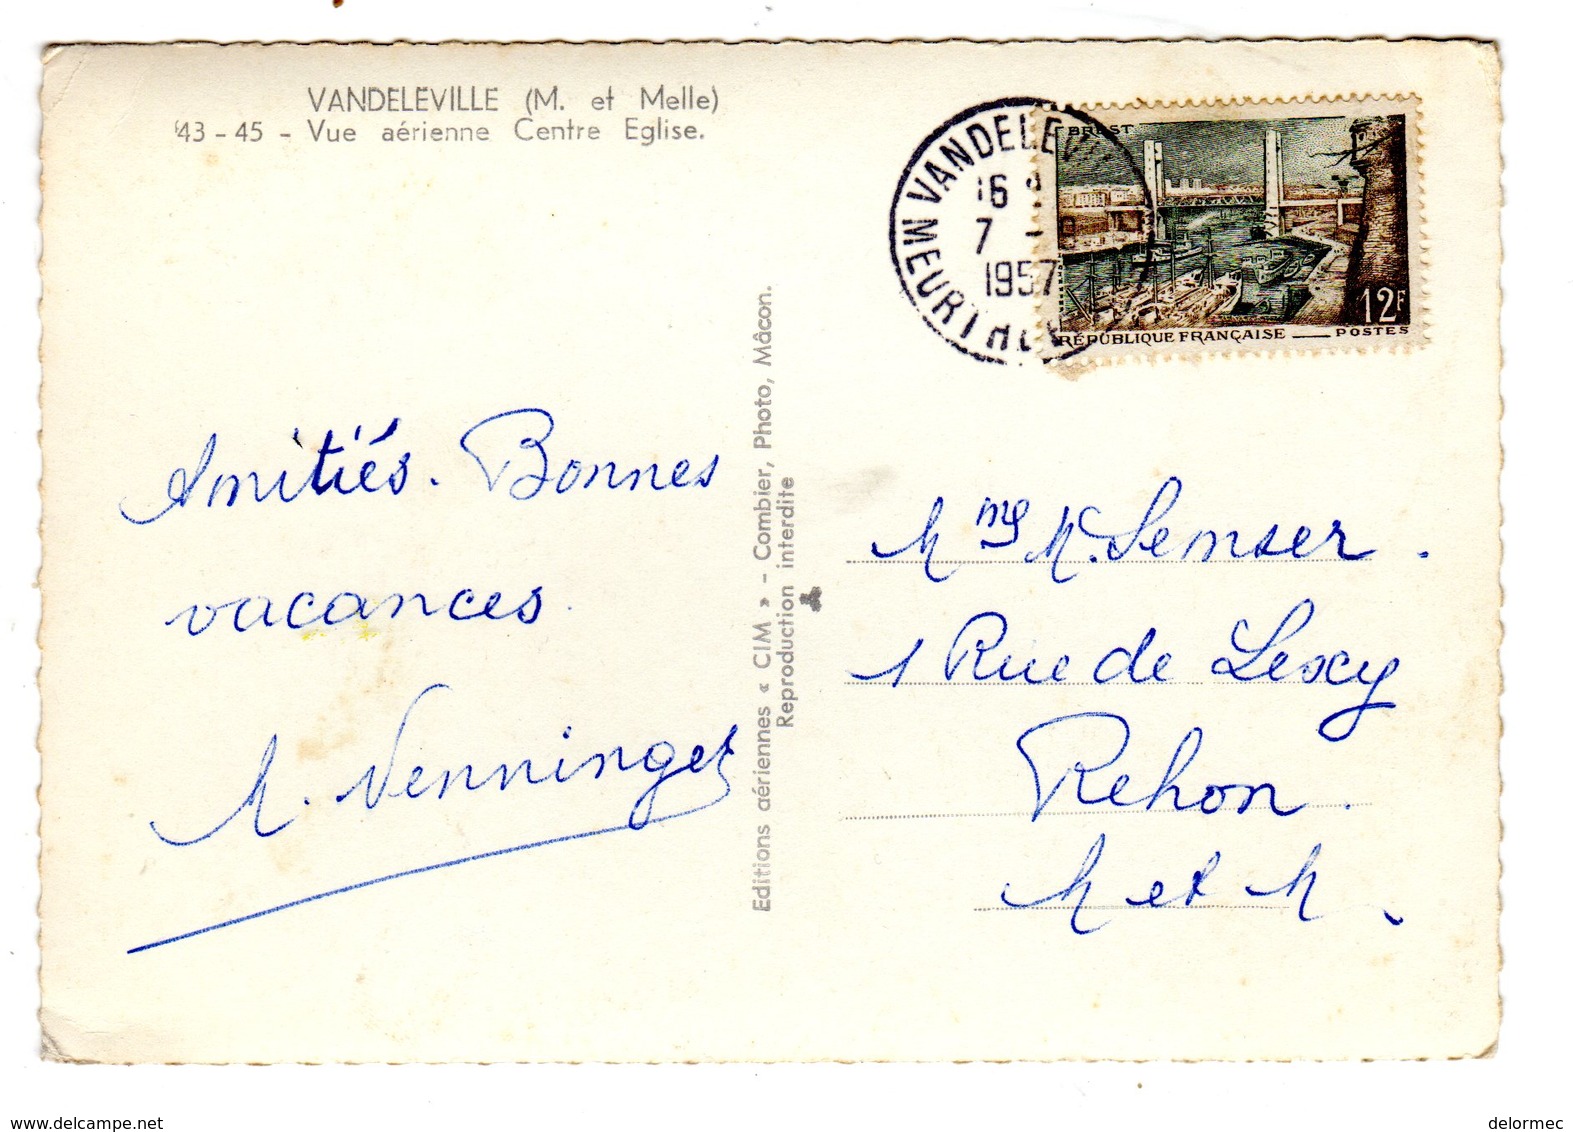 VANDELEVILLE (M. et Melle)
43 - 45 - Vue aérienne Centre Eglise.
VANDELEV
16
7 -
1957
MEURTHE
BREST
12F
RÉPUBLIQUE FRANÇAISE
POSTES
Amitiés. Bonnes
vacances.
Editions aériennes « CIM » - Combier, Photo, Mâcon.
Reproduction interdite
1 Rue de Lexy
Rehon.
M et M.
www.delcampe.net
delormec